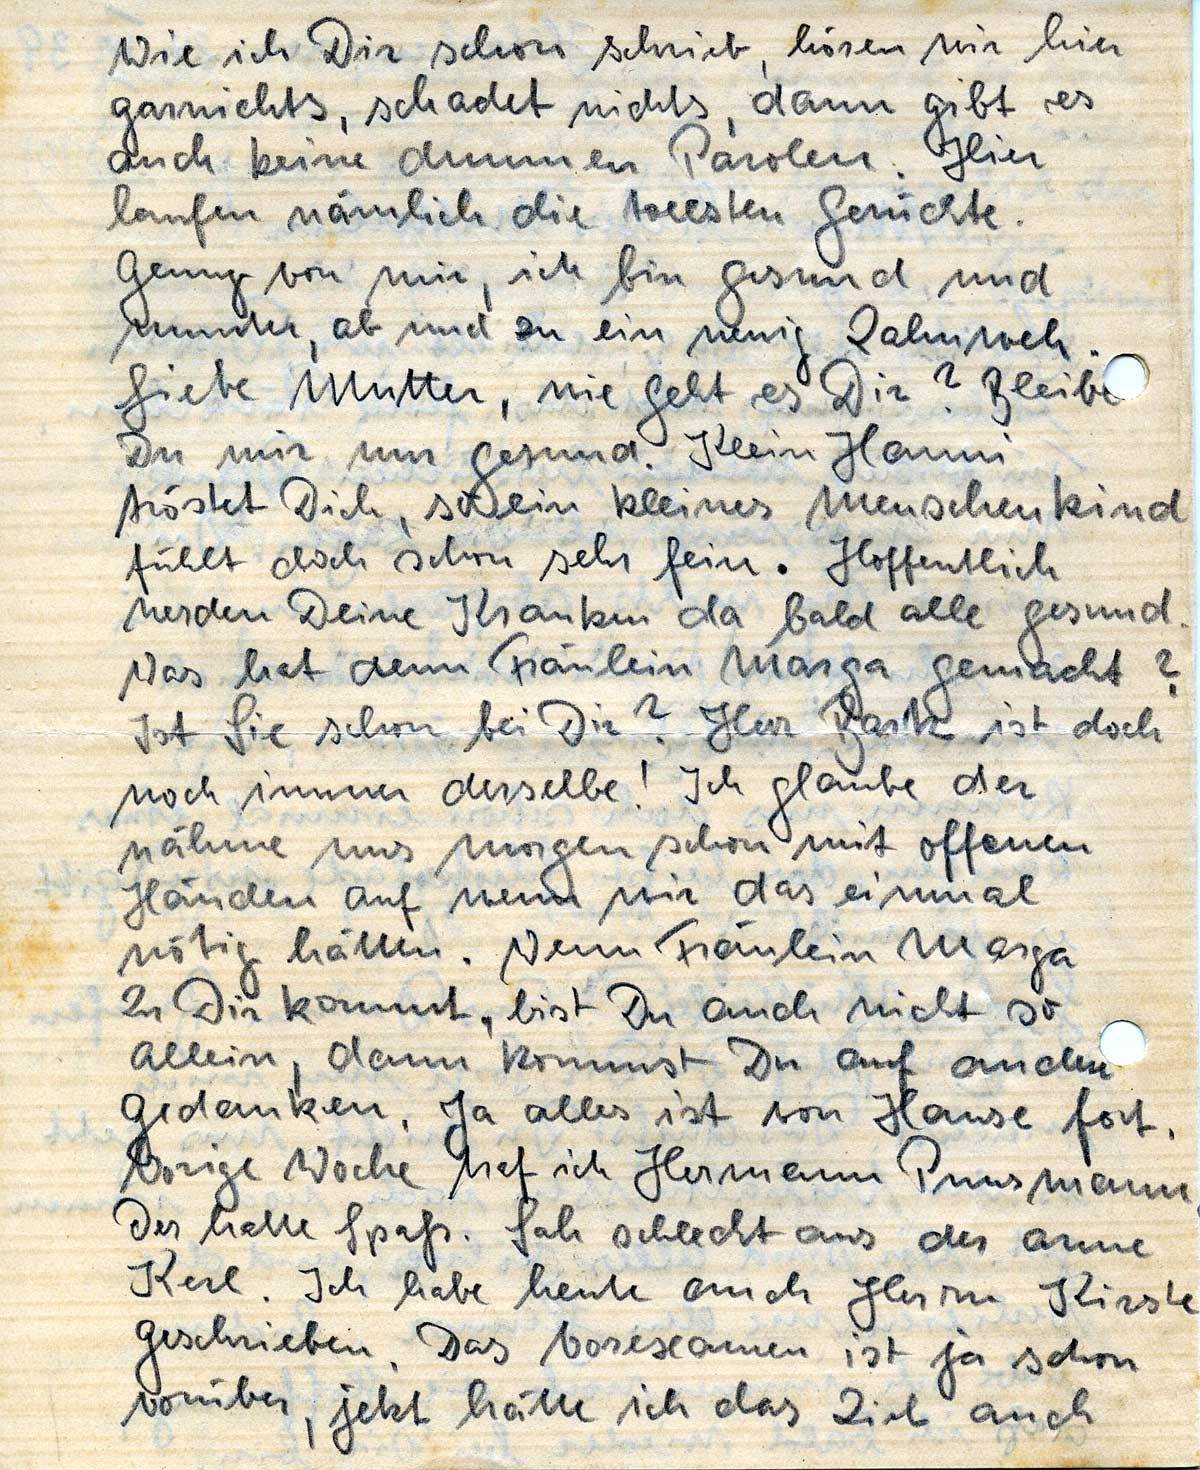 Wie ich Dir schon schrieb, hören wir hier
garnichts, schadet nichts, dann gibt es
auch keine dummen Parolen. Hier
laufen nämlich die tollsten Gerüchte.
Genug von mir, ich bin gesund und
munter, ab und zu ein wenig Zahnweh.
Liebe Mutter, wie geht es Dir? Bleibe
Du mir nur gesund. Klein Hanni
tröstet Dich, so ein kleines Menschenkind
fühlt doch schon sehr fein. Hoffentlich
werden Deine Kranken da bald alle gesund.
Was hat denn Fräulein Marga gemacht?
Ist Sie schon bei Dir? Herr Bartz ist doch
noch immer derselbe! Ich glaube der
nähme uns morgen schon mit offenen
Händen auf wenn wir das einmal
nötig hätten. Wenn Fräulein Marga
zu Dir kommt, bist Du auch nicht so
allein, dann kommst Du auf andere
Gedanken. Ja alles ist von Hause fort.
Vorige Woche traf ich Hermann Puusmann,
Der hatte Spaß. Sah schlecht aus der arme
Kerl. Ich habe heute auch Herrn Kirste
geschrieben. Das Vorexamen ist ja schon
vorüber, jetzt hätte ich das Ziel auch